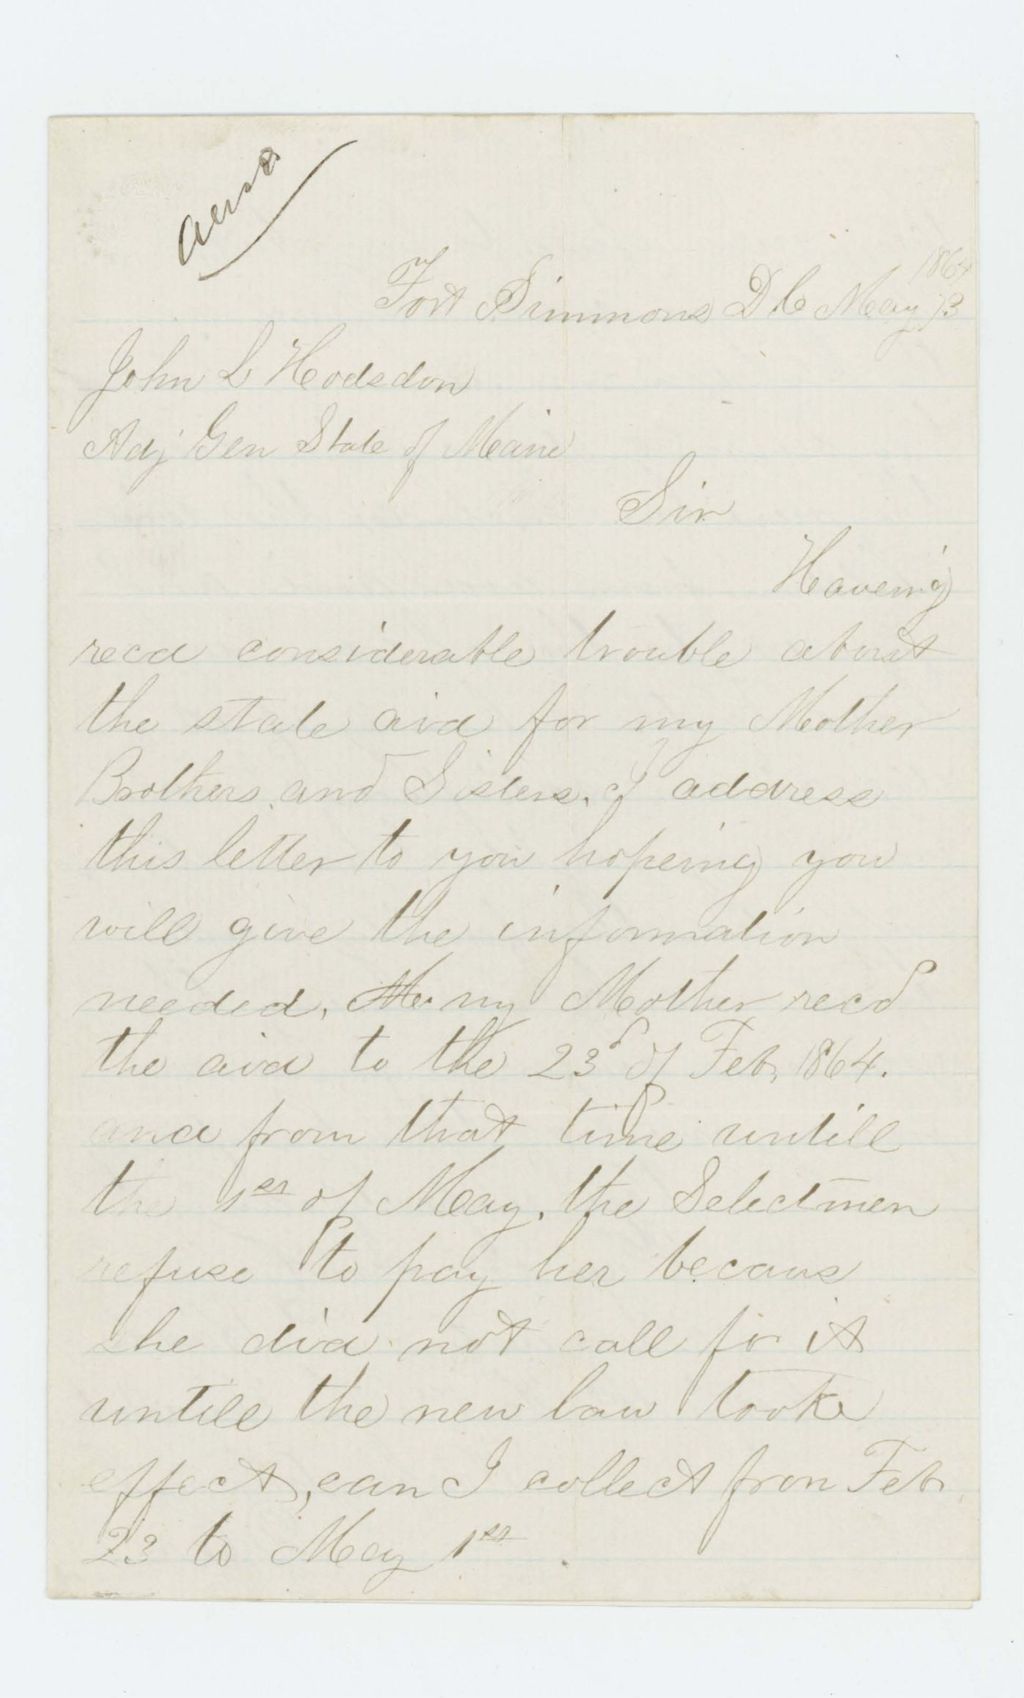 ansd
1864
Fort Simmons D C May 13
John L Hodsdon
Adj Gen State of Maine
Sir
Haveing
recd considerable trouble about
the state aid for my Mother
Brothers, and Sisters. I address
this letter to you hopeing you
will give the information
needed, my Mother recd
the aid to the 23d of Feb, 1864.
and from that time untill
the 1st of May, the Selectmen
refuse to pay her becaus
she did not call for it
untill the new law tooke
effect, can I collect from Feb
23 to May 1st.